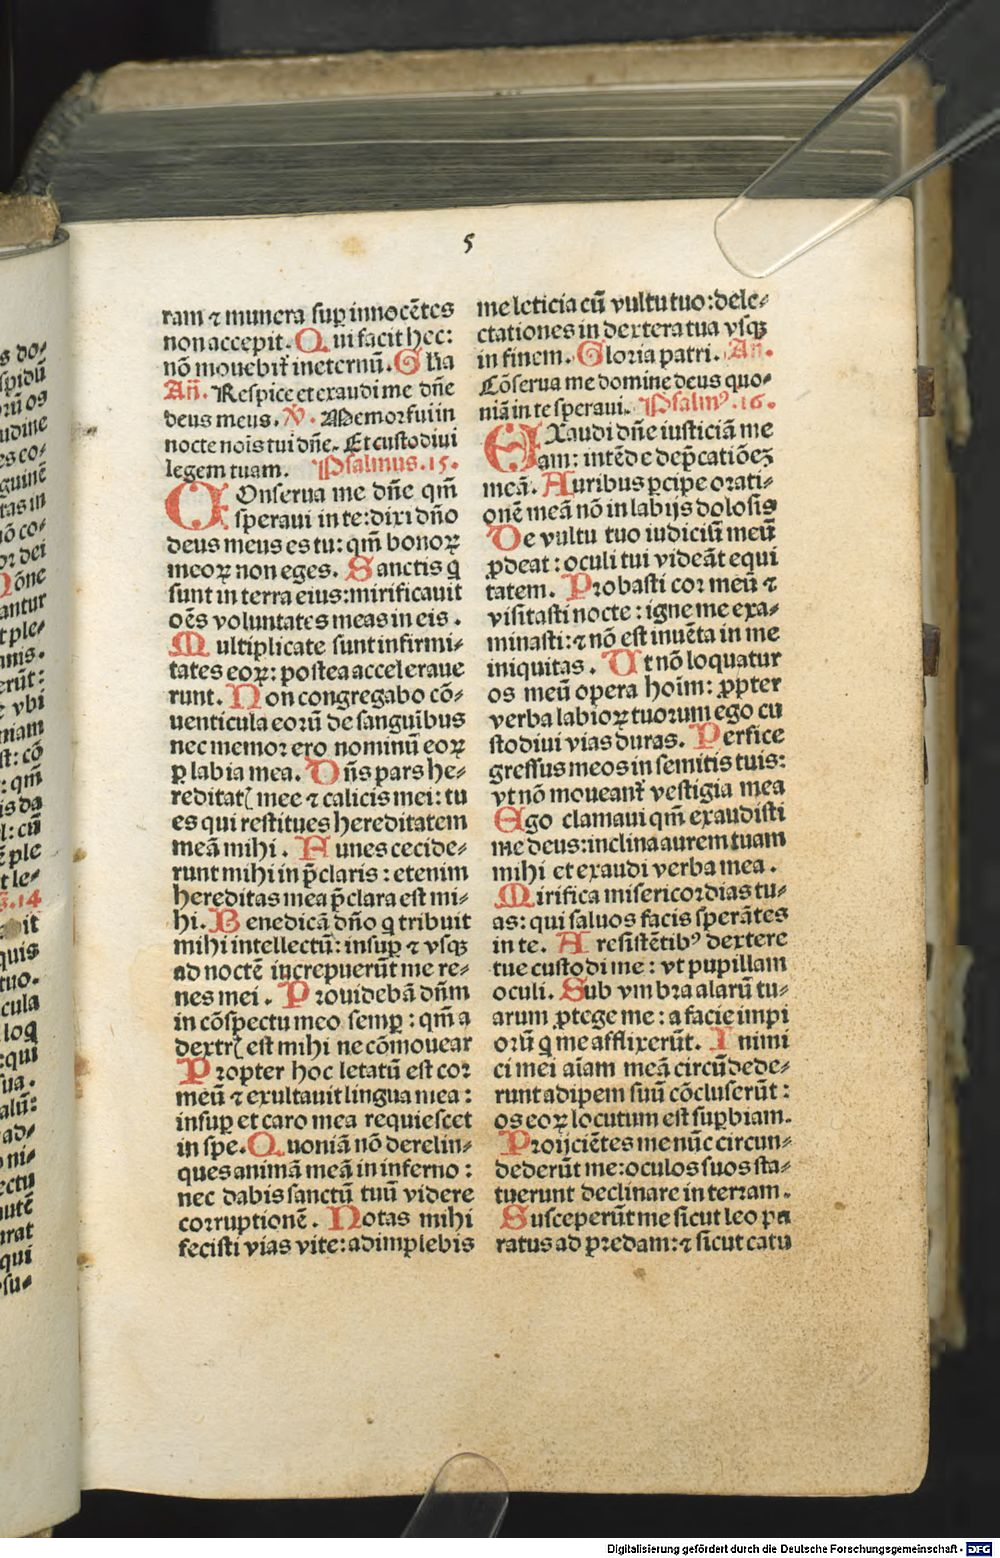 5
ram ⁊ munera suꝑ innocẽtes
non accepit. Qui facit hec:
nõ mouebit᷑ in eternũ. Glꝛia
Añ. Respice et exaudi me dñe
deus meus. ℣. Memor fui in
nocte noĩs tui dñe. Et custodiui
legem tuam. Psalmus. 15.
COnserua me dñe qm̃
speraui in te: dixi dño
deus meus es tu: qm̃ bonoꝝ
meoꝝ non eges. Sanctis q̃
sunt in terra eius: mirificauit
oẽs voluntates meas in eis.
Multiplicate sunt infirmi⸗
tates eoꝝ: postea acceleraue
runt. Non congregabo cõ⸗
uenticula eorũ de sanguĩbus
nec memor ero nominũ eoꝝ
ꝑ labia mea. Dñs pars he⸗
reditatꝭ mee ⁊ calicis mei: tu
es qui restitues hereditatem
meã mihi. Funes cecide⸗
runt mihi in p̃claris: etenim
hereditas mea p̃clara est mi⸗
hi. Benedicã dño q̃ tribuit
mihi intellectũ: insuꝑ ⁊ vsqꝫ
ad noctẽ increpuerũt me re⸗
nes mei. Prouidebã dñm
in cõspectu meo semꝑ: qm̃ a
dextrꝭ est mihi ne cõmouear
Propter hoc letatũ est cor
meũ ⁊ exultauit lingua mea:
insuꝑ et caro mea requiescet
in spe. Quoniã nõ derelin⸗
ques animã meã in inferno:
nec dabis sanctũ tuũ videre
corruptionẽ. Notas mihi
fecisti vias vite: adimplebis
me leticia cũ vultu tuo: dele⸗
ctationes in dextera tua vsqꝫ
in finem. Gloria patri. Añ.
Cõserua me domine deus quo⸗
niã in te speraui. Psalmꝰ. 16.
EXaudi dñe iusticiã me
am: intẽde dep̃catiõeꝫ
meã. Auribus ꝑcipe orati⸗
onẽ meã nõ in labijs dolosis
De vultu tuo iudiciũ meũ
ꝓdeat: oculi tui videãt equi
tatem. Probasti cor meũ ⁊
visitasti nocte: igne me exa⸗
minasti: ⁊ nõ est inuẽta in me
iniquitas. Ut nõ loquatur
os meũ opera hoĩm: ꝓpter
verba labioꝝ tuorum ego cu
stodiui vias duras. Perfice
gressus meos in semitis tuis:
vt nõ moueant᷑ vestigia mea
Ego clamaui qm̃ exaudisti
me deus: inclina aurem tuam
mihi et exaudi verba mea.
Mirifica misericordias tu⸗
as: qui saluos facis sperãtes
in te. A resistẽtibꝰ dextere
tue custodi me: vt pupillam
oculi. Sub vmbra alarũ tu⸗
arum ꝓtege me: a facie impi
orũ q̃ me afflixerũt. Inimi
ci mei aĩam meã circũdede⸗
runt adipem suũ cõcluserũt:
os eoꝝ locutum est suꝑbiam.
Proijciẽtes me nũc circun⸗
dederũt me: oculos suos sta⸗
tuerunt declinare in terram.
Susceperũt me sicut leo pa
ratus ad predam: ⁊ sicut catu
Digitalisierung gefördert durch die Deutsche Forschungsgemeinschaft - DFG